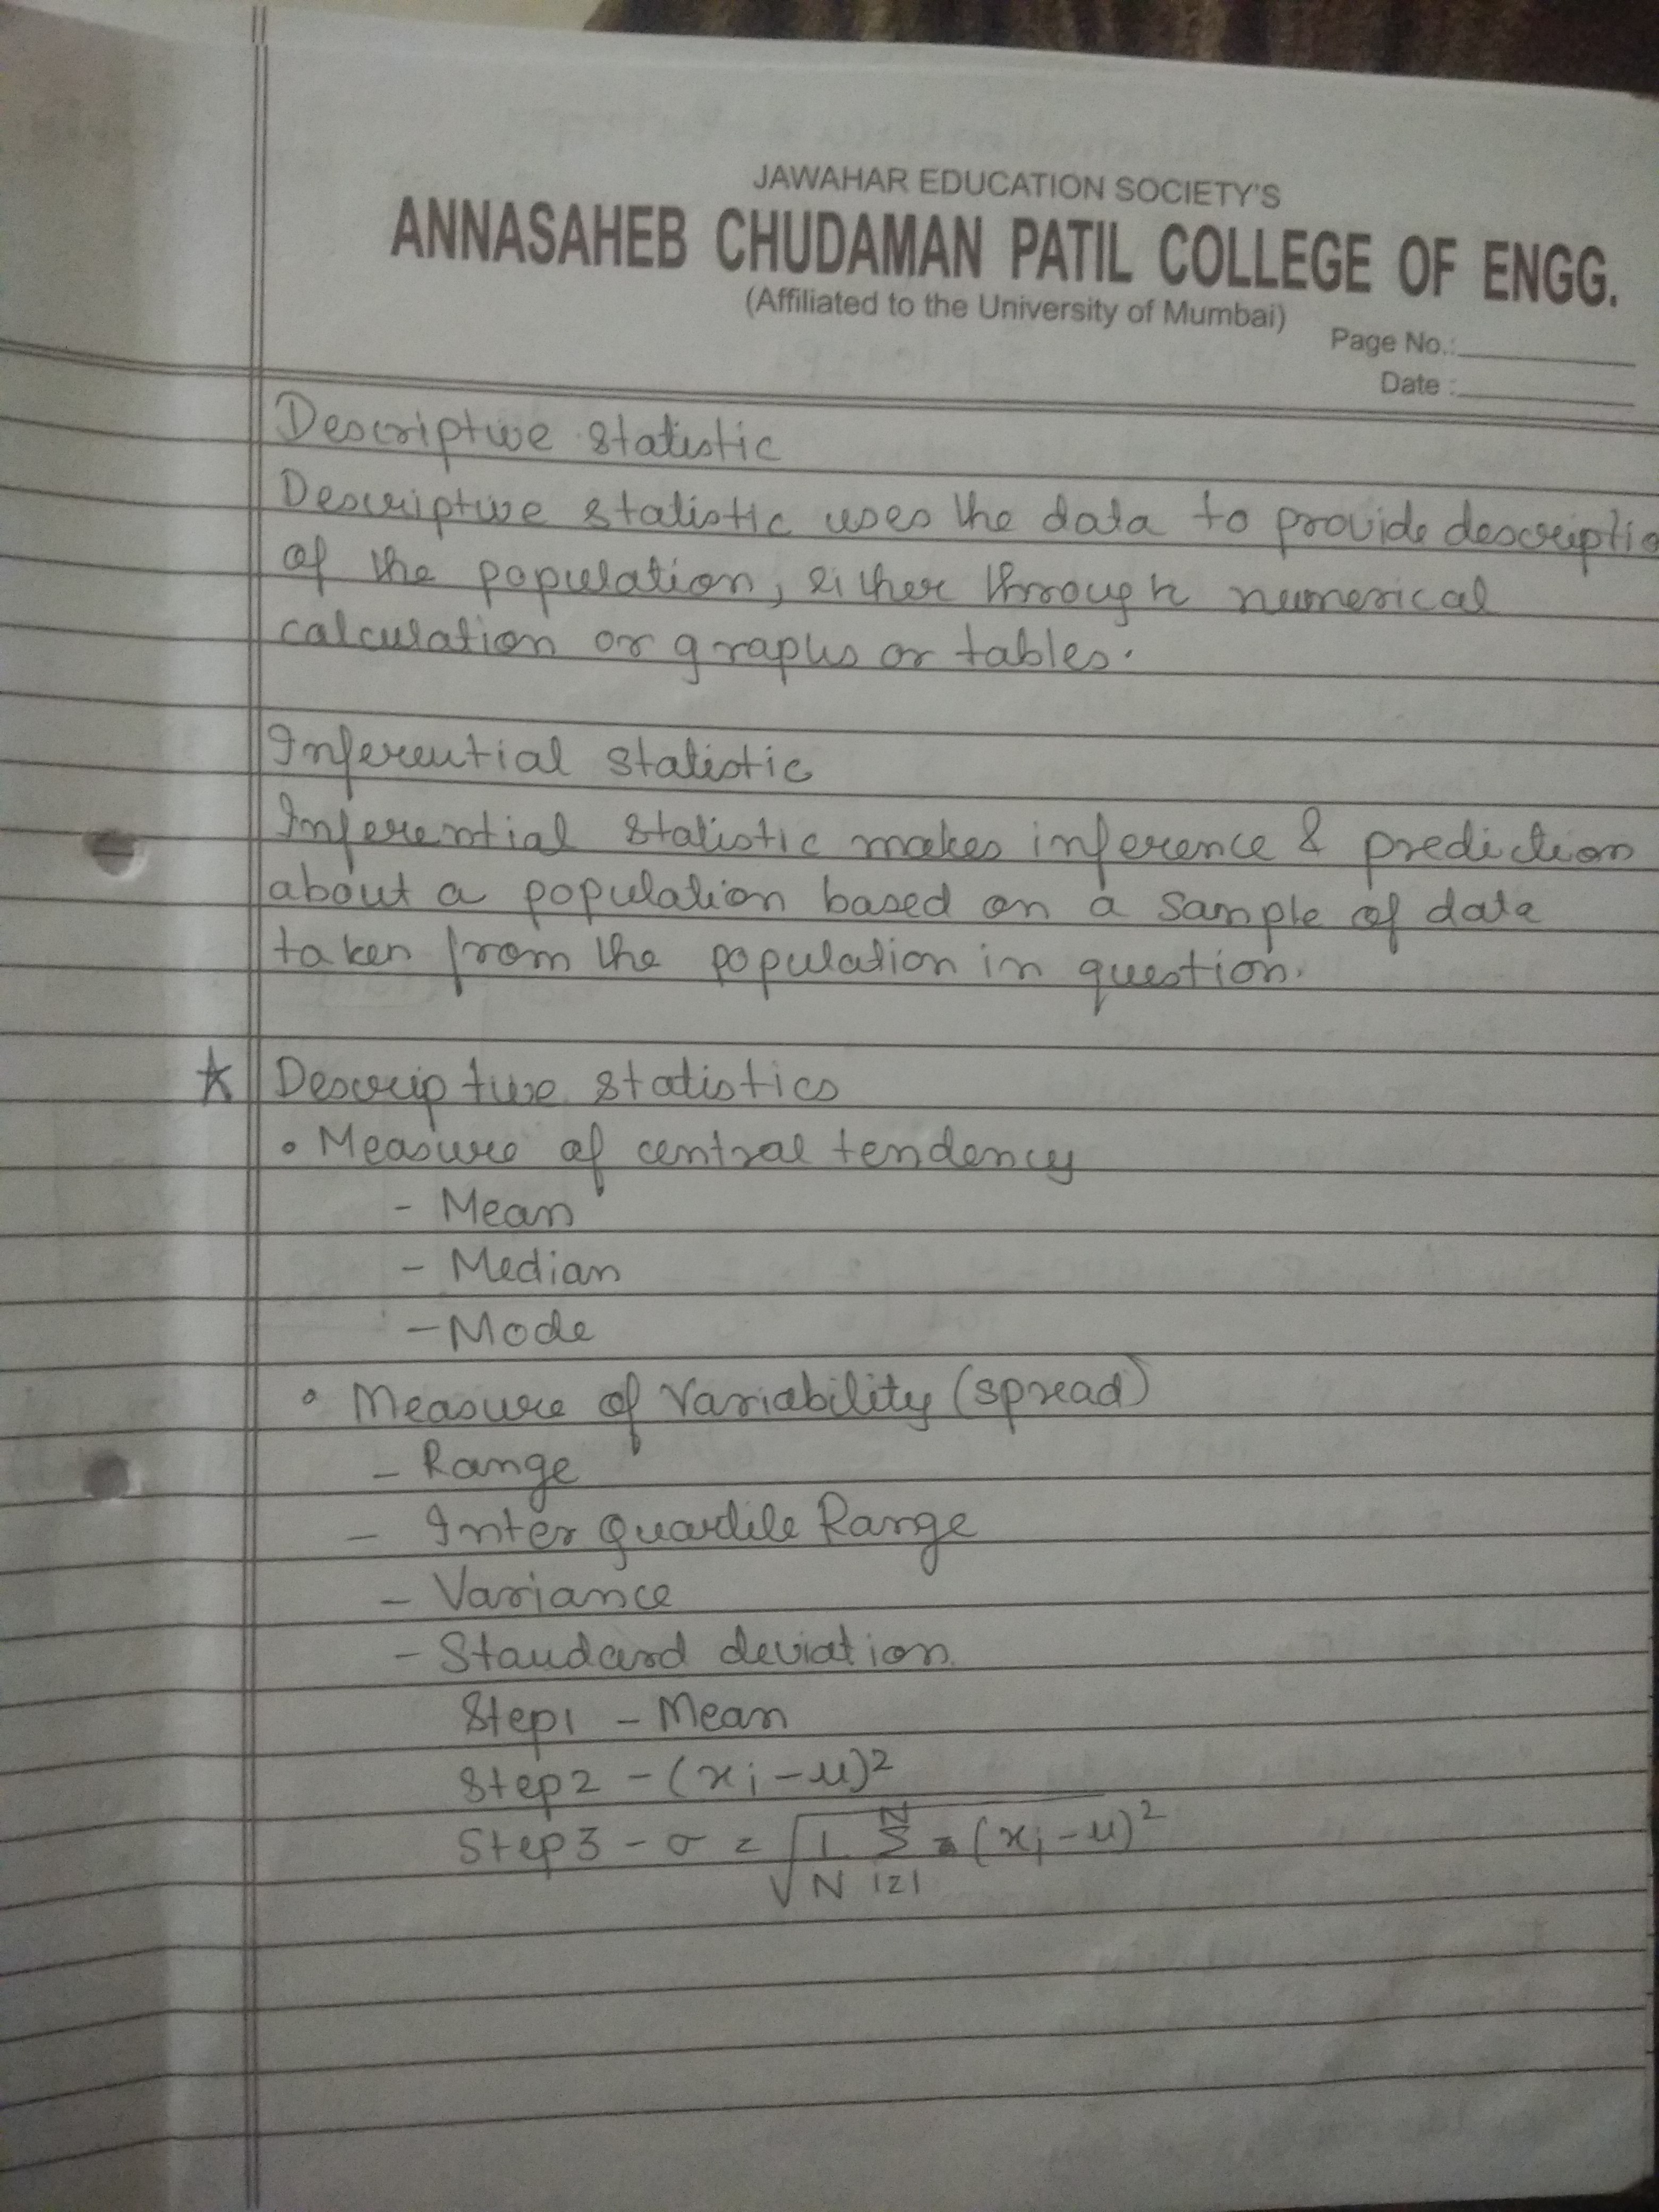 JAWAHAR EDUCATION SOCIETY'S
ANNASAHEB CHUDAMAN PATIL COLLEGE OF ENGG.
(Affiliated to the University of Mumbai)
Page No.:
Date :
Descriptive statistic
Descriptive statistic uses the data to provide descriptio
of the population, either through numerical
calculation or graphs or tables.
Inferential statistic
Inferential statistic makes inference & prediction
about a population based on a sample of data
taken from the population in question.
★ Descriptive statistics
• Measure of central tendency
- Mean
- Median
- Mode
• Measure of Variability (spread)
- Range
- Inter Quartile Range
- Variance
- Standard deviation
Step1 - Mean
Step2 - (xi - u)²
Step3 - σ = √1/N N Σ i=1 (xi - u)²